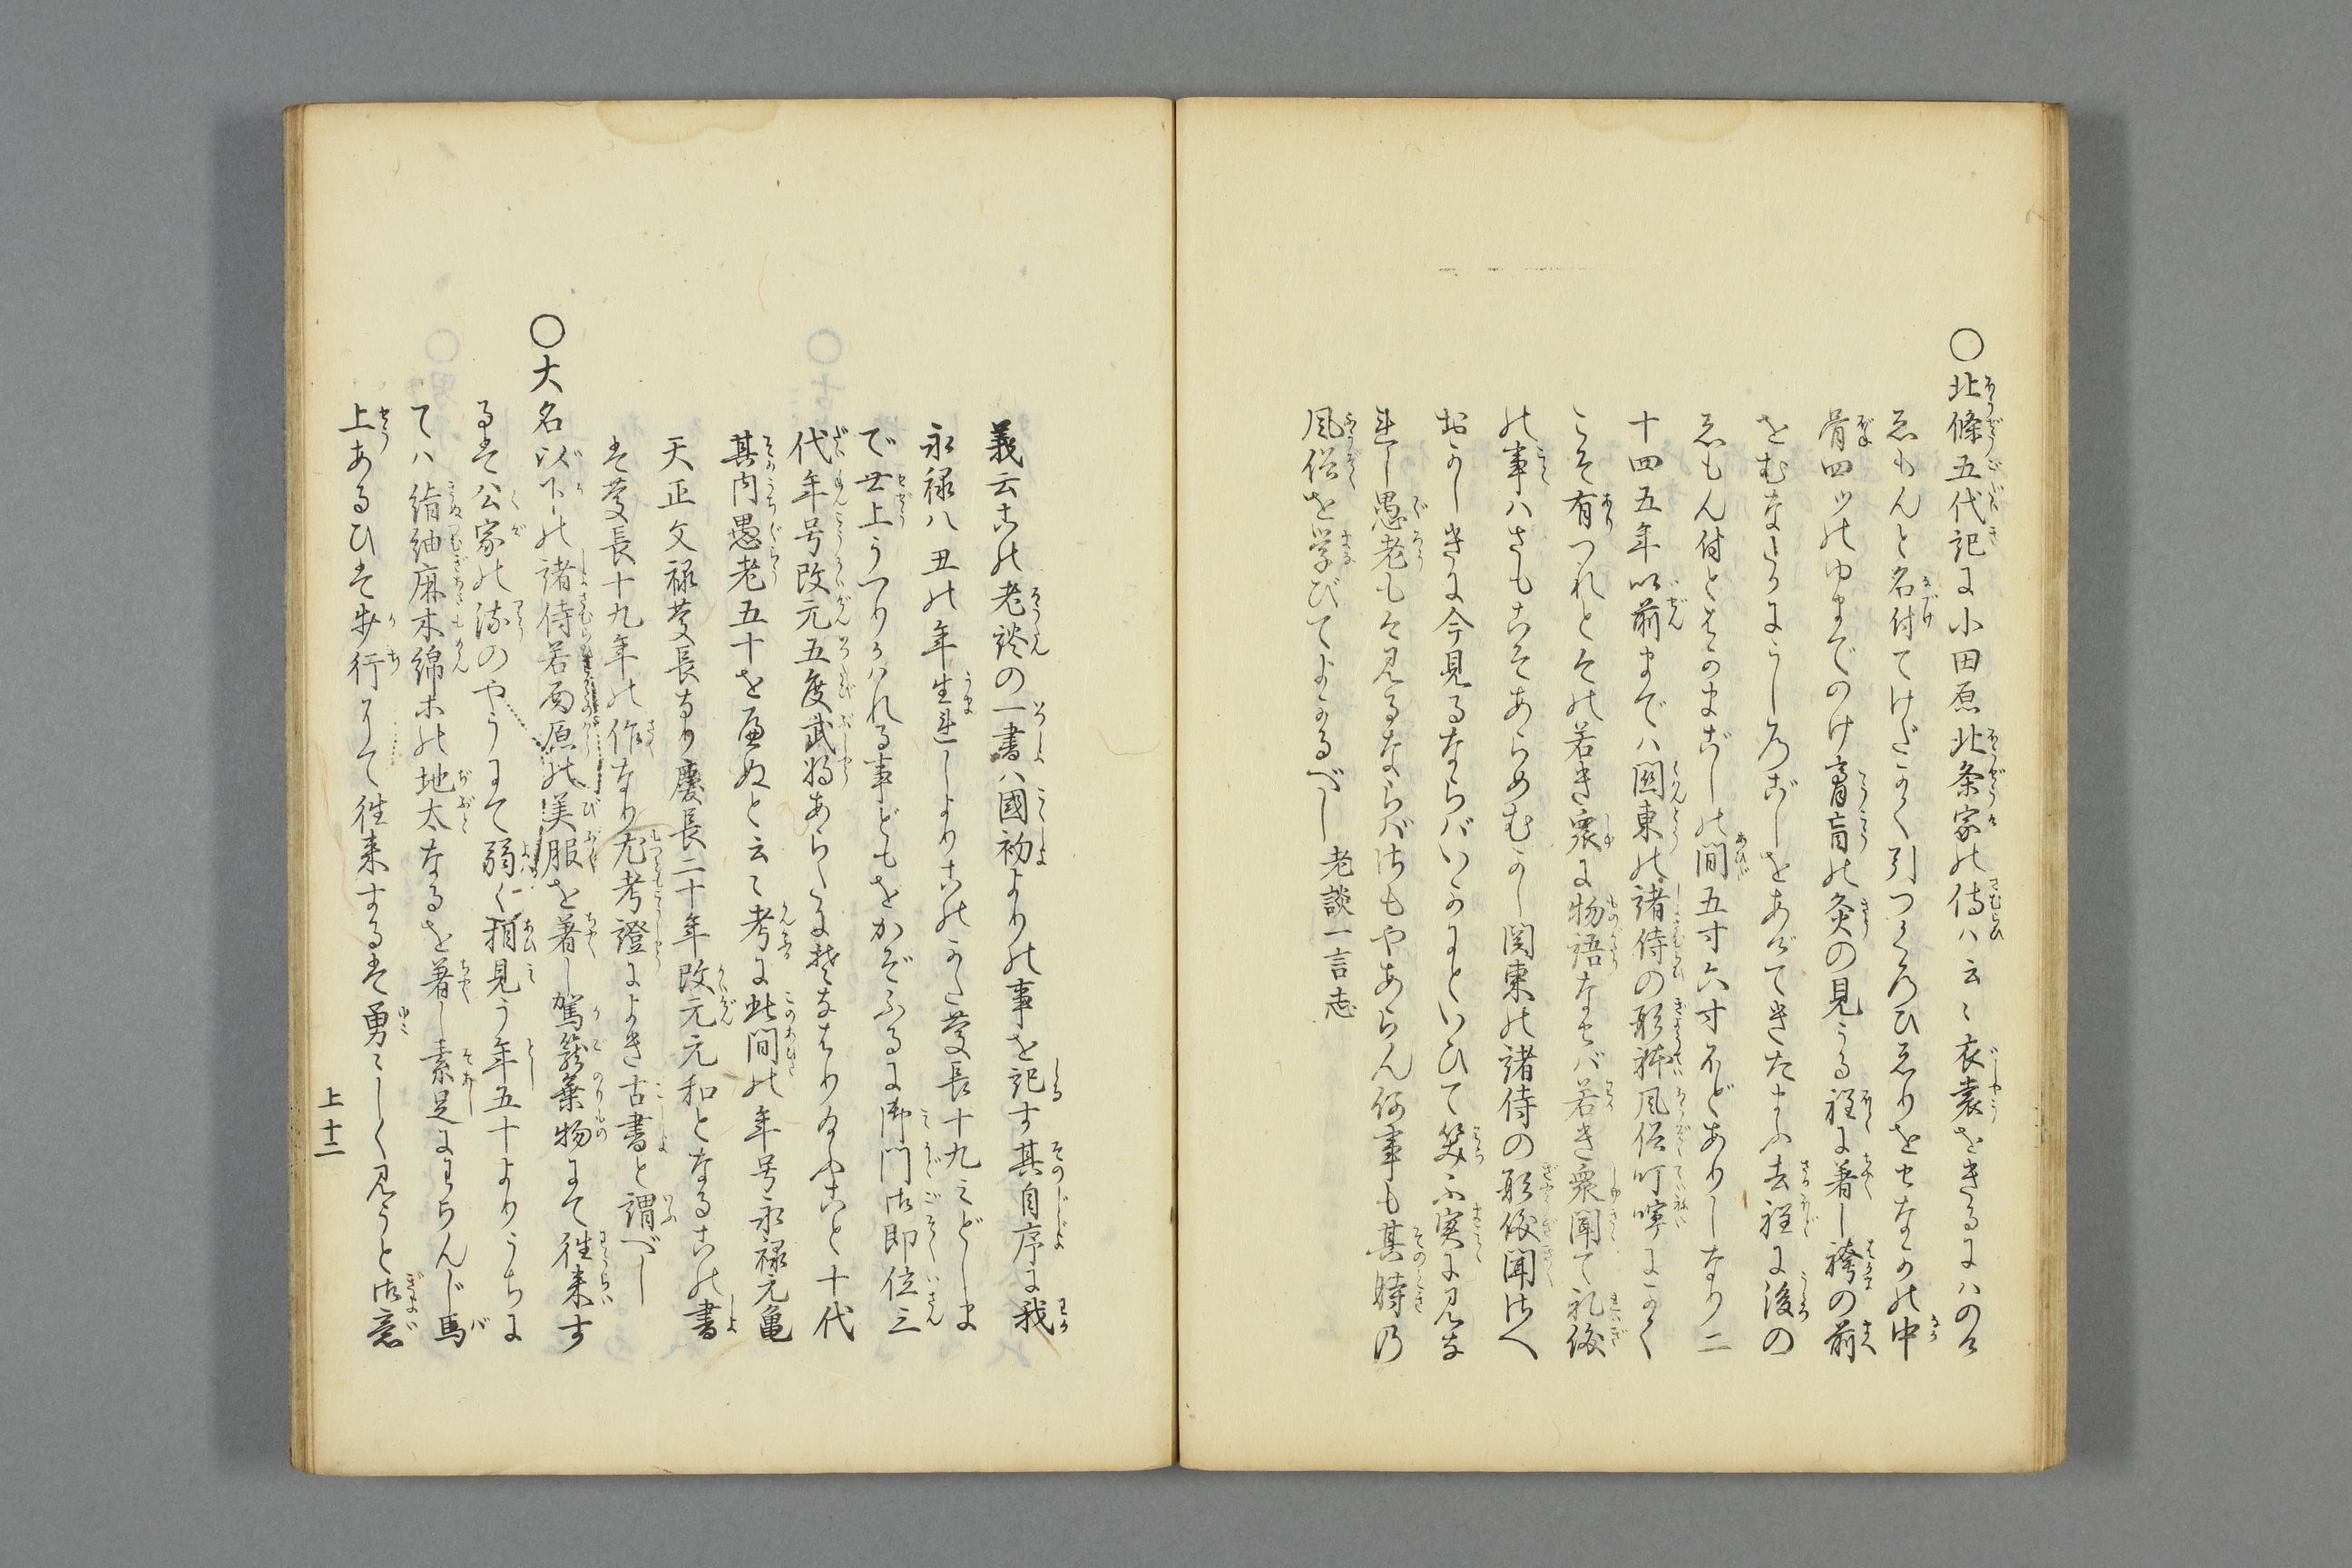 ○北條五代記に小田原北条家の侍ハ云々衣裳をきるにハのけ
ゑもんと名付てけだかく引つくろひゑりをせなかの中
骨四ツのゆまでのけ膏肓の灸の見うる程に著し袴の前
をむなたかにうしろごしをあげてきたまふ去程に後の
ゑもん付とはかまごしの間五寸六寸ほどありしなり二
十四五年以前までハ関東の諸侍の形裃風俗叮嚀にかく
こそ有つれとその若き衆に物語なせバ若き衆聞て礼儀
の事ハさもこそあらめむかし関東の諸侍の形儀聞さへ
おかしきに今見るならバいかにといひて笑ふ実に見な
れし愚老もそ見るならばさもやあらん何事も其時乃
風俗を学びてよかるべし 老談一言志
義云この老談の一書ハ國初よりの事を記す其自序に我
永禄八丑の年生れしよりこのかた慶長十九之どしま
で世上うつりかハれる事どもをかぞふるに御門御即位三
代年号改元五度武将あらたに替なはり給ふこと十代
其内愚老五十を歴ぬと云々考に此間の年号永禄元亀
天正文禄慶長なり慶長二十年改元元和となるこの書
は慶長十九年の作なり尤考證によき古書と謂べし
○大名以下の諸侍若面原の美服を著し駕籠乗物にて往来す
るは公家の流のやうにて弱く相見う年五十よりうちに
てハ絹紬麻木綿ホの地太なるを著し素足にわらんじ馬
上あるひは歩行にて往来するは勇々しく見うと御意
上十二